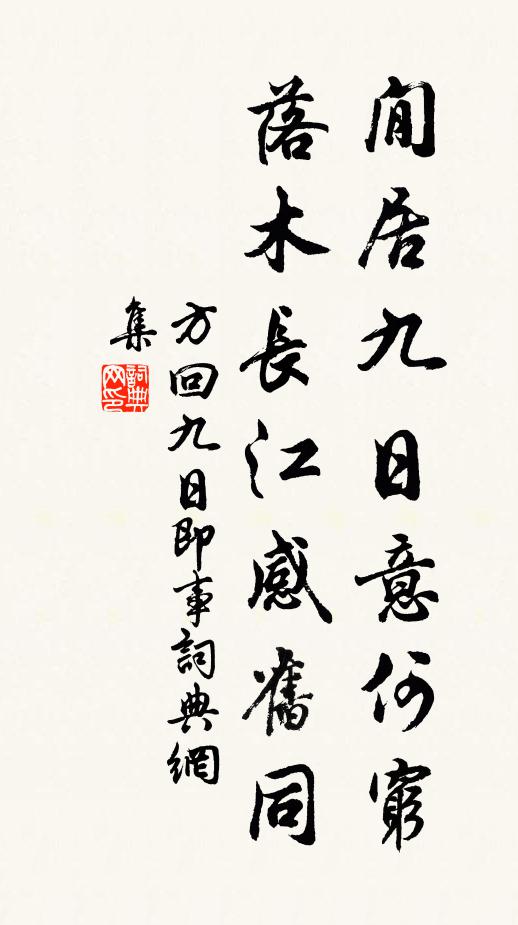 閒居九日意何窮
落木長江感舊同
方回九日即事詞典網
集
詞典
网印